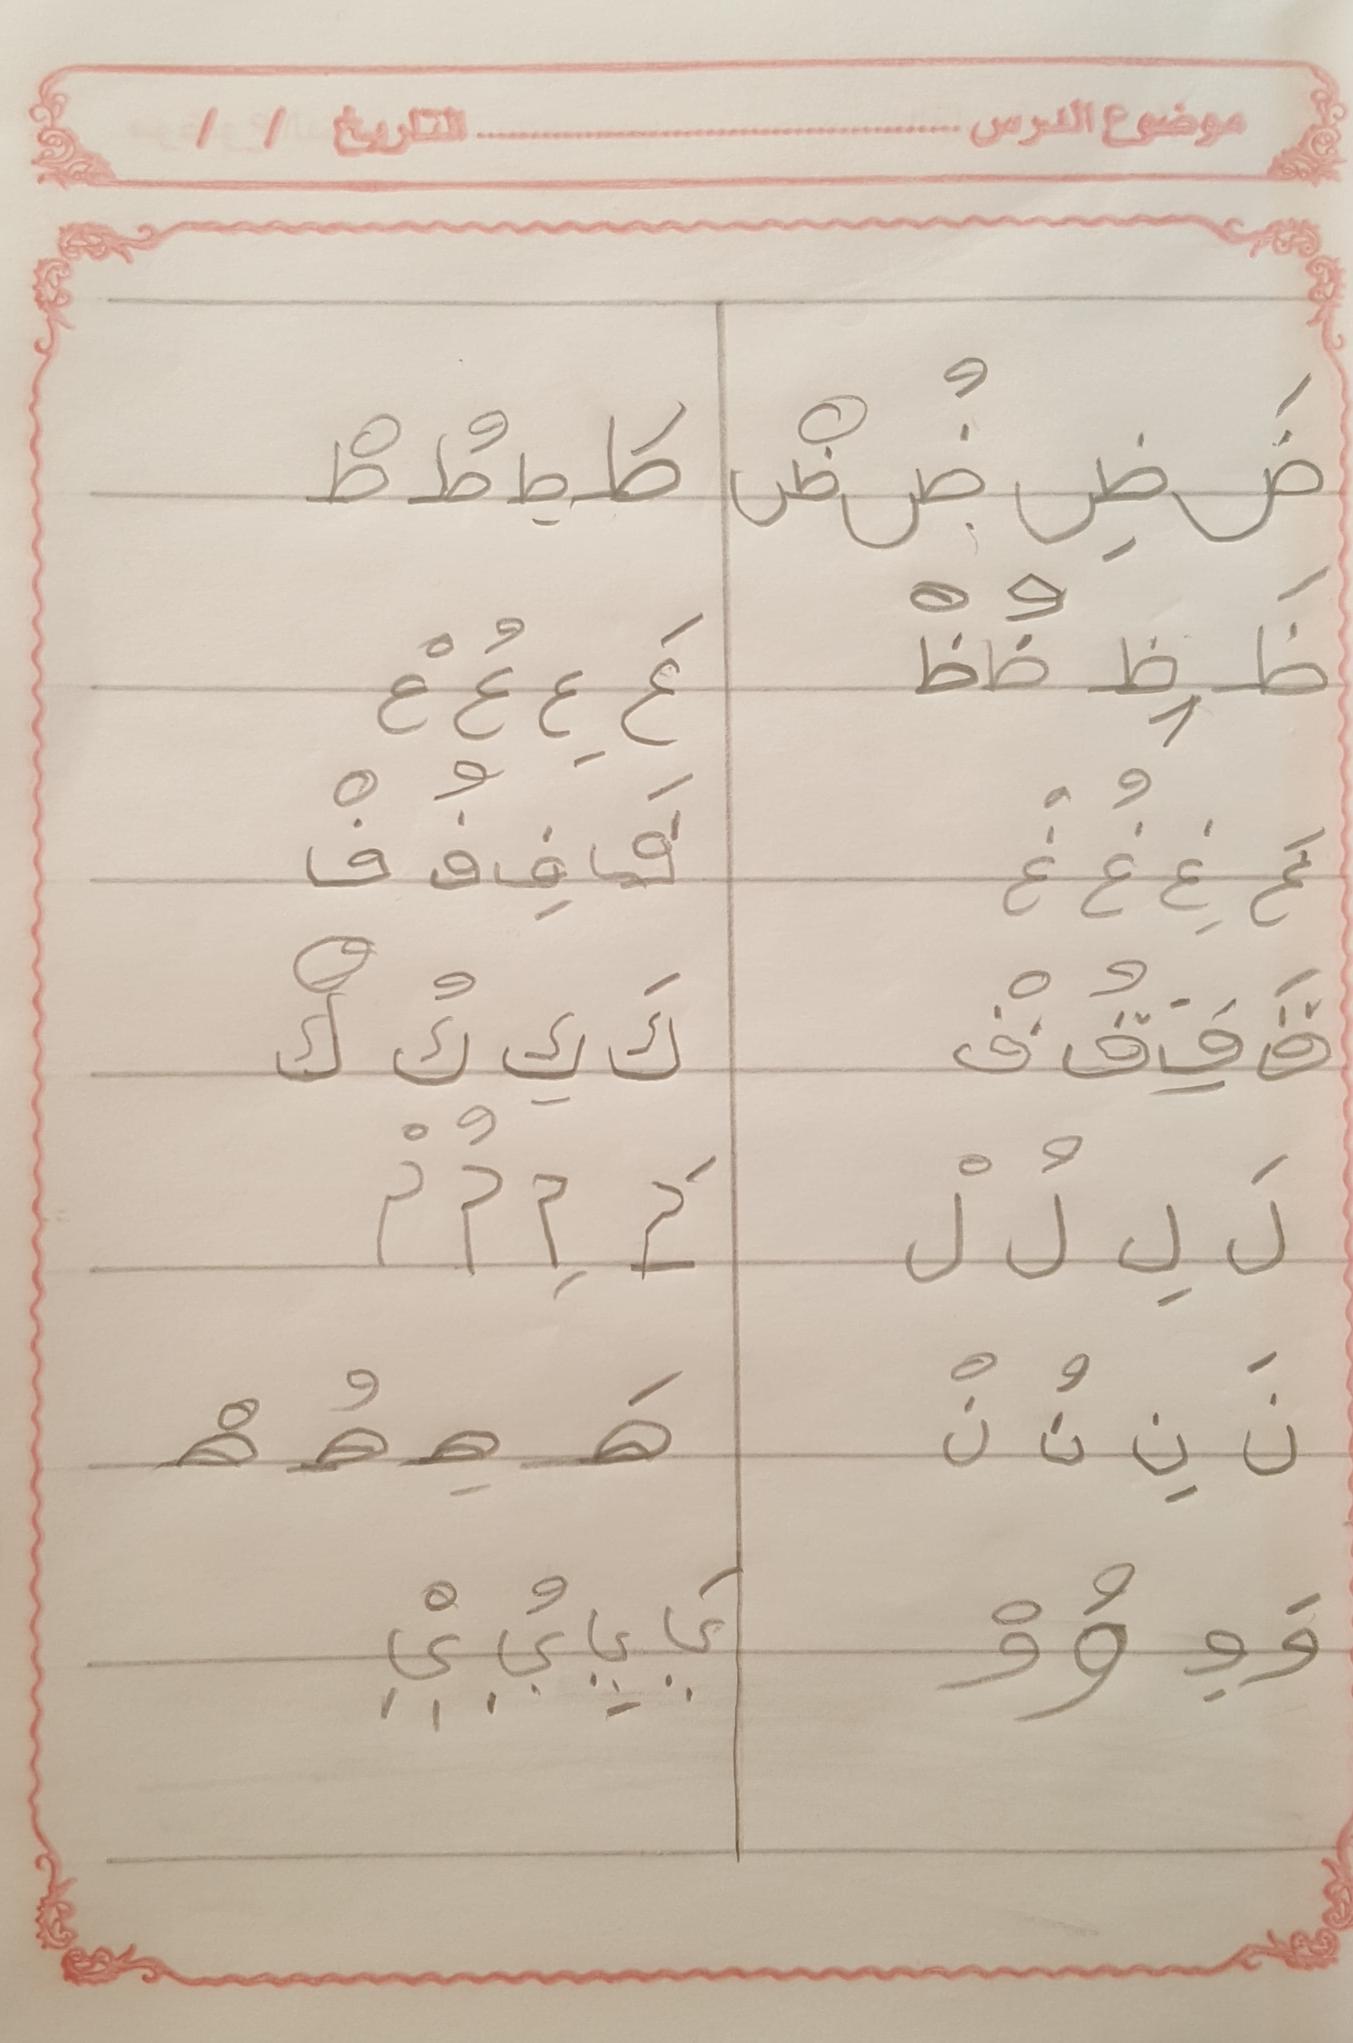 موضوع الدرس ........................ التاريخ / /
ضَ ضِ ضُ ضْ طَ طِ طُ طْ
ظَ ظِ ظُ ظْ عَ عِ عُ عْ
غَ غِ غُ غْ فَ فِ فُ فْ
قَ قِ قُ قْ كَ كِ كُ كْ
لَ لِ لُ لْ مَ مِ مُ مْ
نَ نِ نُ نْ هَ هِ هُ هْ
وَ وِ وُ وْ يَ يِ يُ يْ